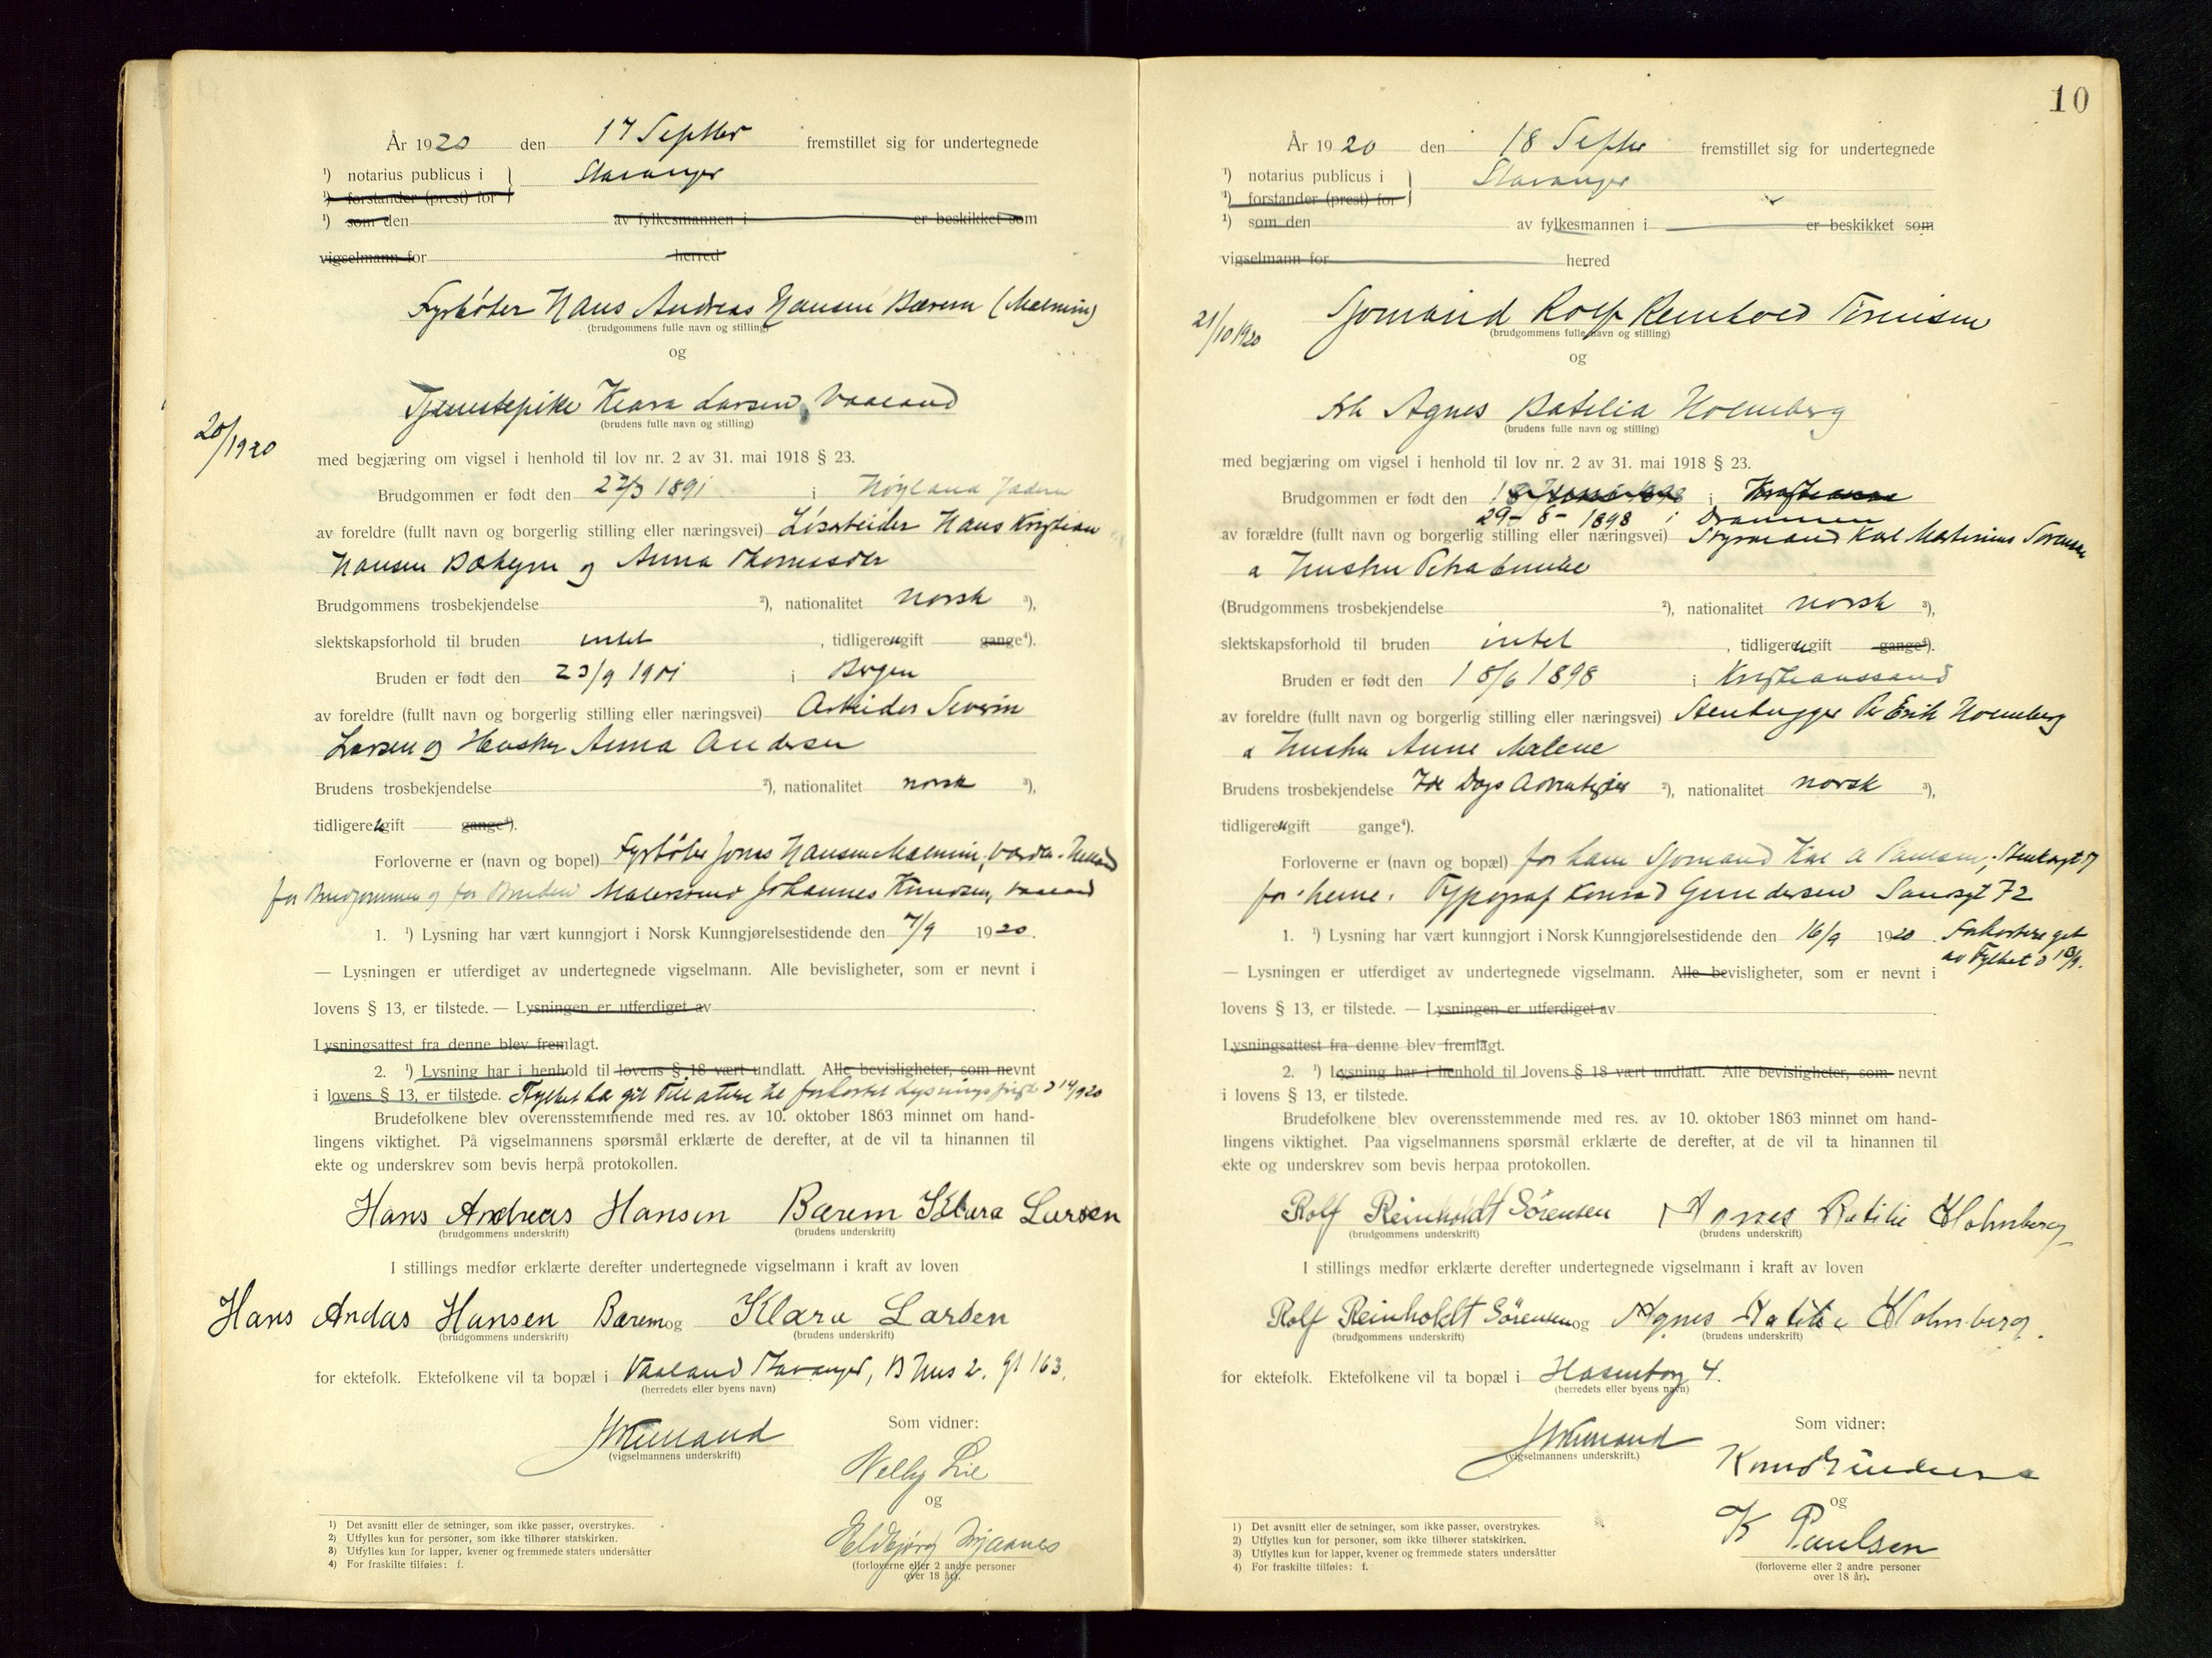 År 1920 den 17 Septbr fremstillet sig for undertegnede
¹) notarius publicus i Stavanger
¹) forstander (prest) for
¹) som den av fylkesmannen i er beskikket som
vigselmann for herred
Fyrbøter Hans Andreas Hansen Bærem (Malmin)
(brudgommens fulle navn og stilling)
og
20/1920
Tjenestepike Klara Larsen, Vaaland
(brudens fulle navn og stilling)
med begjæring om vigsel i henhold til lov nr. 2 av 31. mai 1918 § 23.
Brudgommen er født den 27/3 1891 i Høyland Jæderen
av foreldre (fullt navn og borgerlig stilling eller næringsvei) Løsarbeider Hans Kristian
Hansen og Anna Thomasdtr
Brudgommens trosbekjendelse ²), nationalitet norsk ³),
slektskapsforhold til bruden intet , tidligere ugift gange⁴).
Bruden er født den 23/9 1901 i Bergen
av foreldre (fullt navn og borgerlig stilling eller næringsvei) Arbeider Severin
Larsen og Hustru Anna Andersen
Brudens trosbekjendelse ²), nationalitet norsk ³),
tidligere ugift gange⁴).
Forloverne er (navn og bopel) Fyrbøter Jonas Hansen Malmin,
for Brudgommen og for Bruden Malersvend Johannes Knudsen, Vaaland
1. ¹) Lysning har vært kunngjort i Norsk Kunngjørelsestidende den 7/9 1920.
— Lysningen er utferdiget av undertegnede vigselmann. Alle bevisligheter, som er nevnt i
lovens § 13, er tilstede. — Lysningen er utferdiget av .
Lysningsattest fra denne blev fremlagt.
2. ¹) Lysning har i henhold til lovens § 18 vært undlatt. Alle bevisligheter, som nevnt
i lovens § 13, er tilstede. Fylket ha git tillatelse til forkortet Lysningsfrist d 14/9 20
Brudefolkene blev overensstemmende med res. av 10. oktober 1863 minnet om hand-
lingens viktighet. På vigselmannens spørsmål erklærte de derefter, at de vil ta hinannen til
ekte og underskrev som bevis herpå protokollen.
Hans Andreas Hansen Bærem Klara Larsen
(brudgommens underskrift) (brudens underskrift)
I stillings medfør erklærte derefter undertegnede vigselmann i kraft av loven
Hans Andas Hansen Bærem og Klara Larsen
(brudgommens underskrift) (brudens underskrift)
for ektefolk. Ektefolkene vil ta bopæl i Vaaland Stavanger, B Hus 2. gt 163.
(herredets eller byens navn)
(vigselmannens underskrift)
Som vidner:
Nelly Lie
og
Eldbjørg
(forloverne eller 2 andre personer
over 18 år).
1) Det avsnitt eller de setninger, som ikke passer, overstrykes.
2) Utfylles kun for personer, som ikke tilhører statskirken.
3) Utfylles kun for lapper, kvener og fremmede staters undersåtter
4) For fraskilte tilføies: f.
10
År 1920 den 18 Septbr fremstillet sig for undertegnede
¹) notarius publicus i Stavanger
¹) forstander (prest) for
¹) som den av fylkesmannen i er beskikket som
vigselmann for herred
21/10 1920
Sjømand Rolf Reinhold Sørensen
(brudgommens fulle navn og stilling)
og
Frk Agnes Batilia Holmberg
(brudens fulle navn og stilling)
med begjæring om vigsel i henhold til lov nr. 2 av 31. mai 1918 § 23.
Brudgommen er født den 18 1898 i
29 - 8 - 1898 i Drammen
av forældre (fullt navn og borgerlig stilling eller næringsvei) Styrmand Karl Martinius Sørensen
a hustru Petra Emilie
(Brudgommens trosbekjendelse ²), nationalitet norsk ³),
slektskapsforhold til bruden intet , tidligere ugift gange⁴).
Bruden er født den 18/6 1898 i Kristianssand
av foreldre (fullt navn og borgerlig stilling eller næringsvei) Stenhugger Per Erik Holmberg
a hustru Anne Malene
Brudens trosbekjendelse 7de Dags Adventister ²), nationalitet norsk ³),
tidligere ugift gange⁴).
Forloverne er (navn og bopæl) for ham Sjømand Karl A Paulsen,
for henne: Typograf Konrad Gundersen 72
1. ¹) Lysning har vært kunngjort i Norsk Kunngjørelsestidende den 16/9 1920. Forkortelse git
av Fylket d 13/9.
— Lysningen er utferdiget av undertegnede vigselmann. Alle bevisligheter, som er nevnt i
lovens § 13, er tilstede. — Lysningen er utferdiget av .
Lysningsattest fra denne blev fremlagt.
2. ¹) Lysning har i henhold til lovens § 18 vært undlatt. Alle bevisligheter, som nevnt
i lovens § 13, er tilstede.
Brudefolkene blev overensstemmende med res. av 10. oktober 1863 minnet om hand-
lingens viktighet. Paa vigselmannens spørsmål erklærte de derefter, at de vil ta hinannen til
ekte og underskrev som bevis herpaa protokollen.
Rolf Reinholdt Sørensen Agnes Batilie Holmberg
(brudgommens underskrift) (brudens underskrift)
I stillings medfør erklærte derefter undertegnede vigselmann i kraft av loven
Rolf Reinholdt Sørensen og Agnes Batilie Holmberg.
(brudgommens underskrift) (brudens underskrift)
for ektefolk. Ektefolkene vil ta bopæl i 4.
(herredets eller byens navn)
(vigselmannens underskrift.)
Som vidner:
og
K Paulsen
(forloverne eller 2 andre personer
over 18 år).
1) Det avsnitt eller de setninger, som ikke passer, overstrykes.
2) Utfylles kun for personer, som ikke tilhører statskirken.
3) Utfylles kun for lapper, kvener og fremmede staters undersåtter
4) For fraskilte tilføies: f.